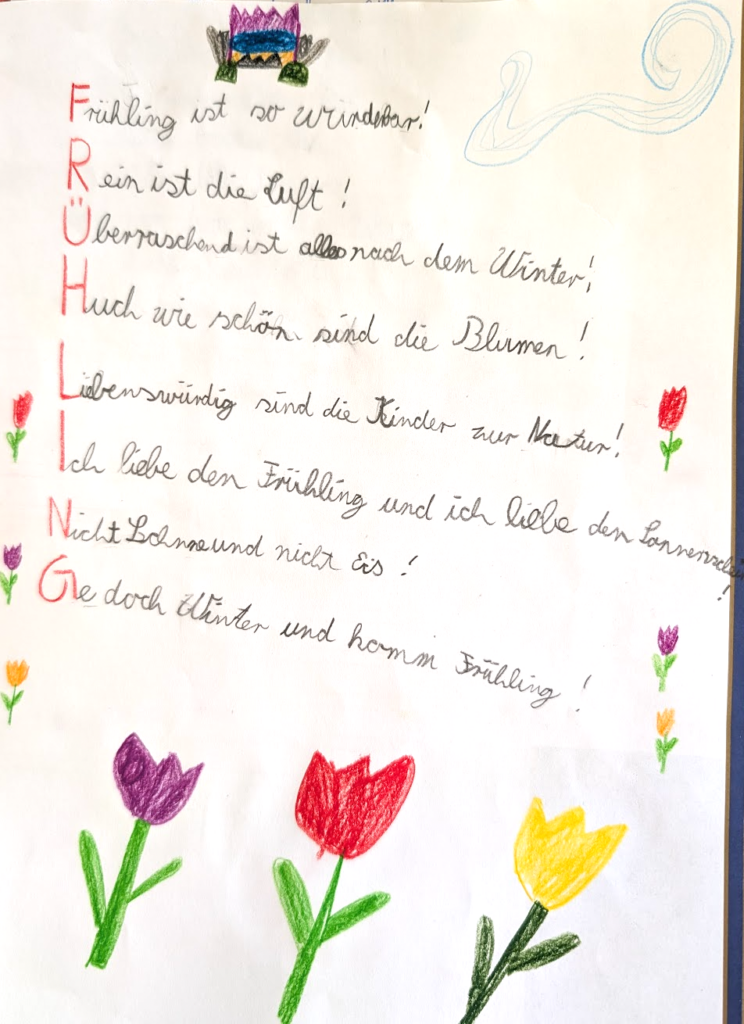 Frühling ist so wunderbar!
Rein ist die Luft!
Überraschend ist alles nach dem Winter!
Huch wie schön sind die Blumen!
Liebenswürdig sind die Kinder zur Natur!
Ich liebe den Frühling und ich liebe den Sonnenschein
!
Nicht Schnee und nicht Eis!
Ge doch Winter und komm Frühling!